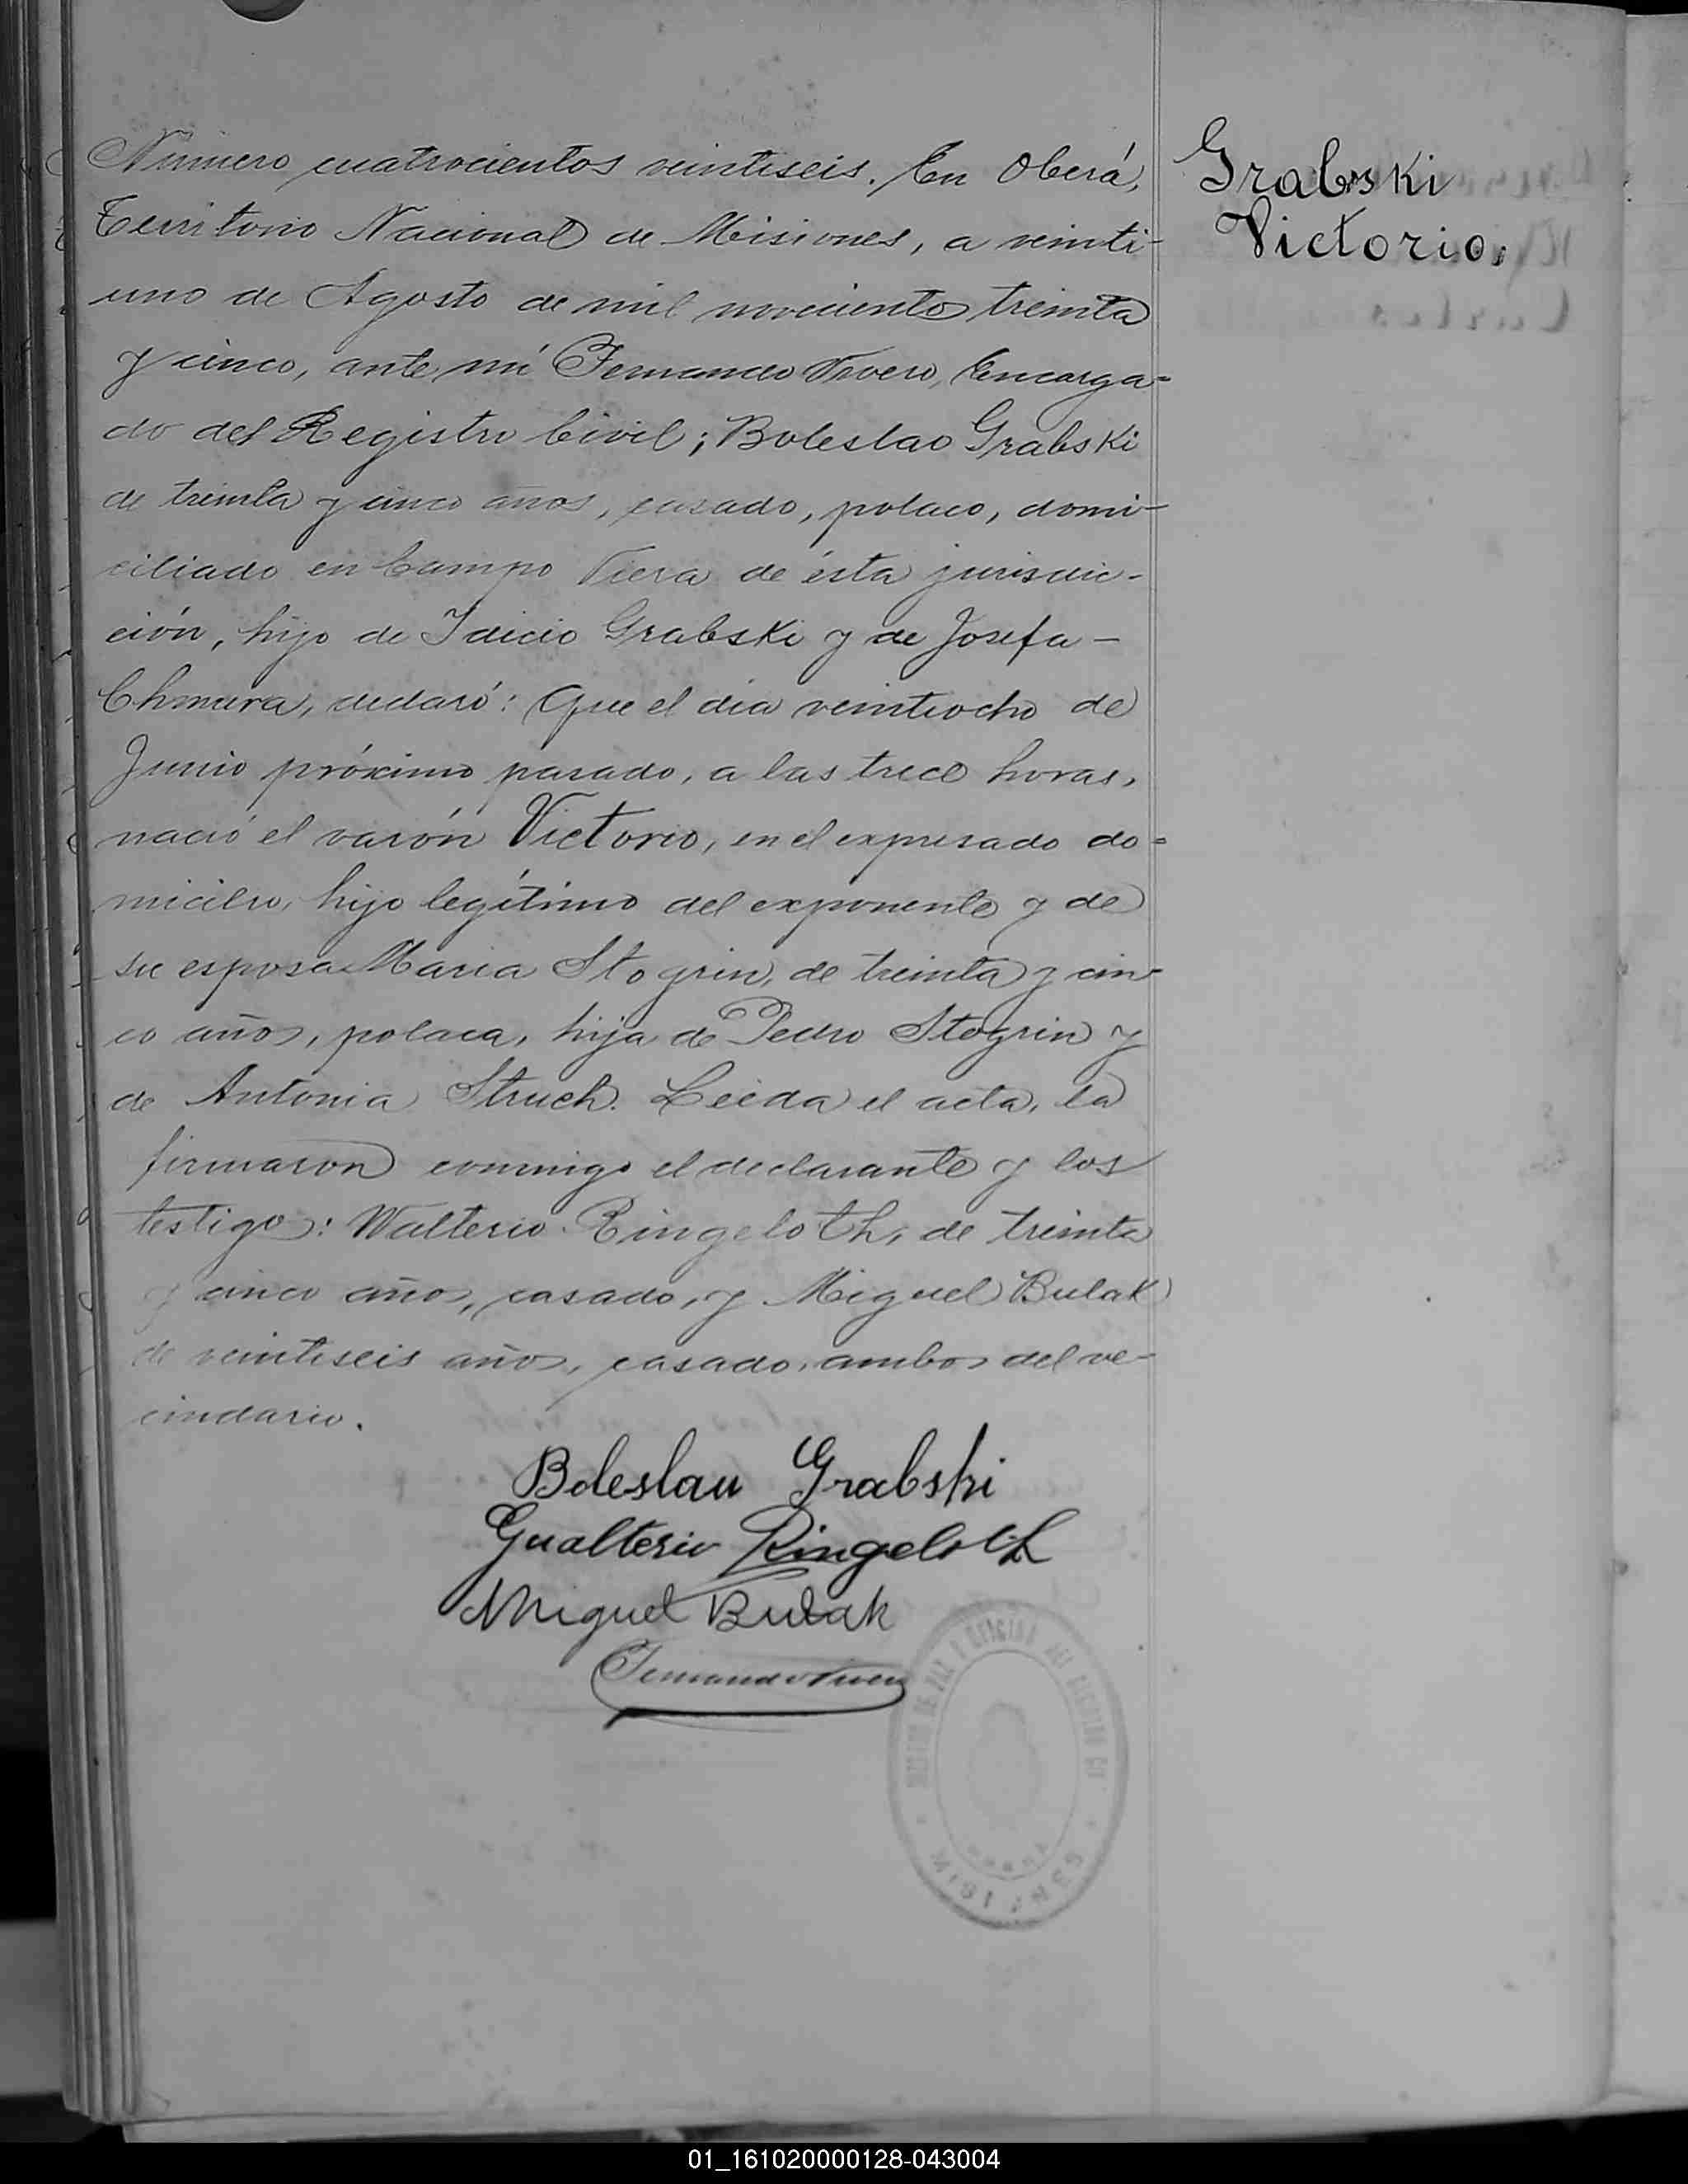 Número cuatrocientos veintiseis. En Oberá,
Territorio Nacional de Misiones, a veinti-
uno de Agosto de mil novecientos treinta
y cinco, ante mí Fernando Vivero, Encarga-
do del Registro Civil; Boleslao Grabski
de treinta y cinco años, casado, polaco, domi-
ciliado en Campo Viera de ésta jurisdic-
ción, hijo de Idicio Grabski y de Josefa -
Chmura, declaró: Que el dia veintiocho de
Junio próximo pasado, a las trece horas,
nació el varón Victorio, en el expresado do-
micilio, hijo legítimo del exponente y de
su esposa Maria Stogrin, de treinta y cin-
co años, polaca, hija de Pedro Stogrin y
de Antonia Struch. Leida el acta, la
firmaron conmigo el declarante y los
testigos: Walterio Ringeloth, de treinta
y cinco años, casado, y Miguel Bulak
de veintiseis años, casado, ambos del ve-
cindario.
Grabski
Victorio.
Boleslau Grabski
Gualterio Ringeloth
Miguel Bulak
MISIONES
01_161020000128-043004